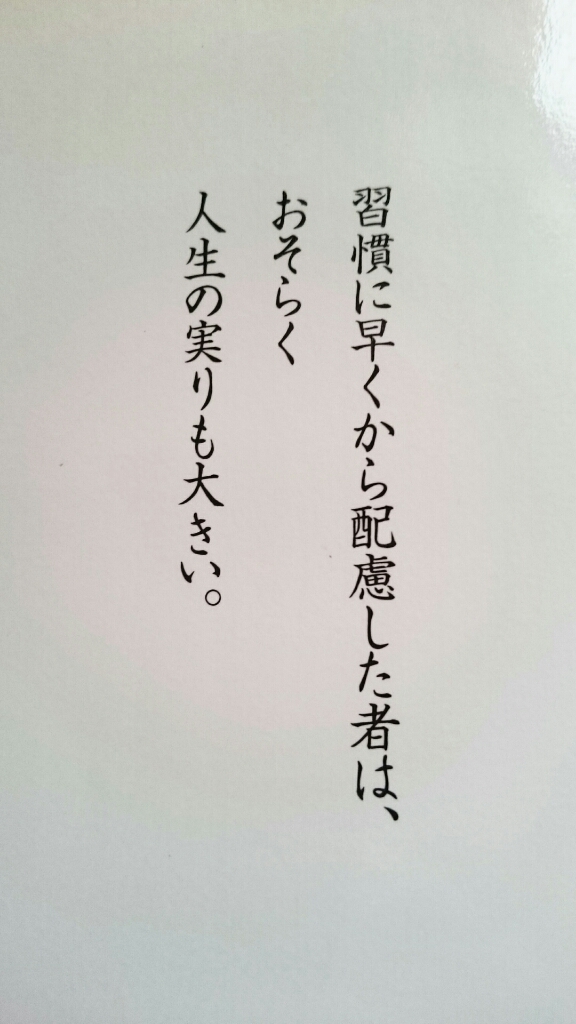 習慣に早くから配慮した者は、
おそらく
人生の実りも大きい。